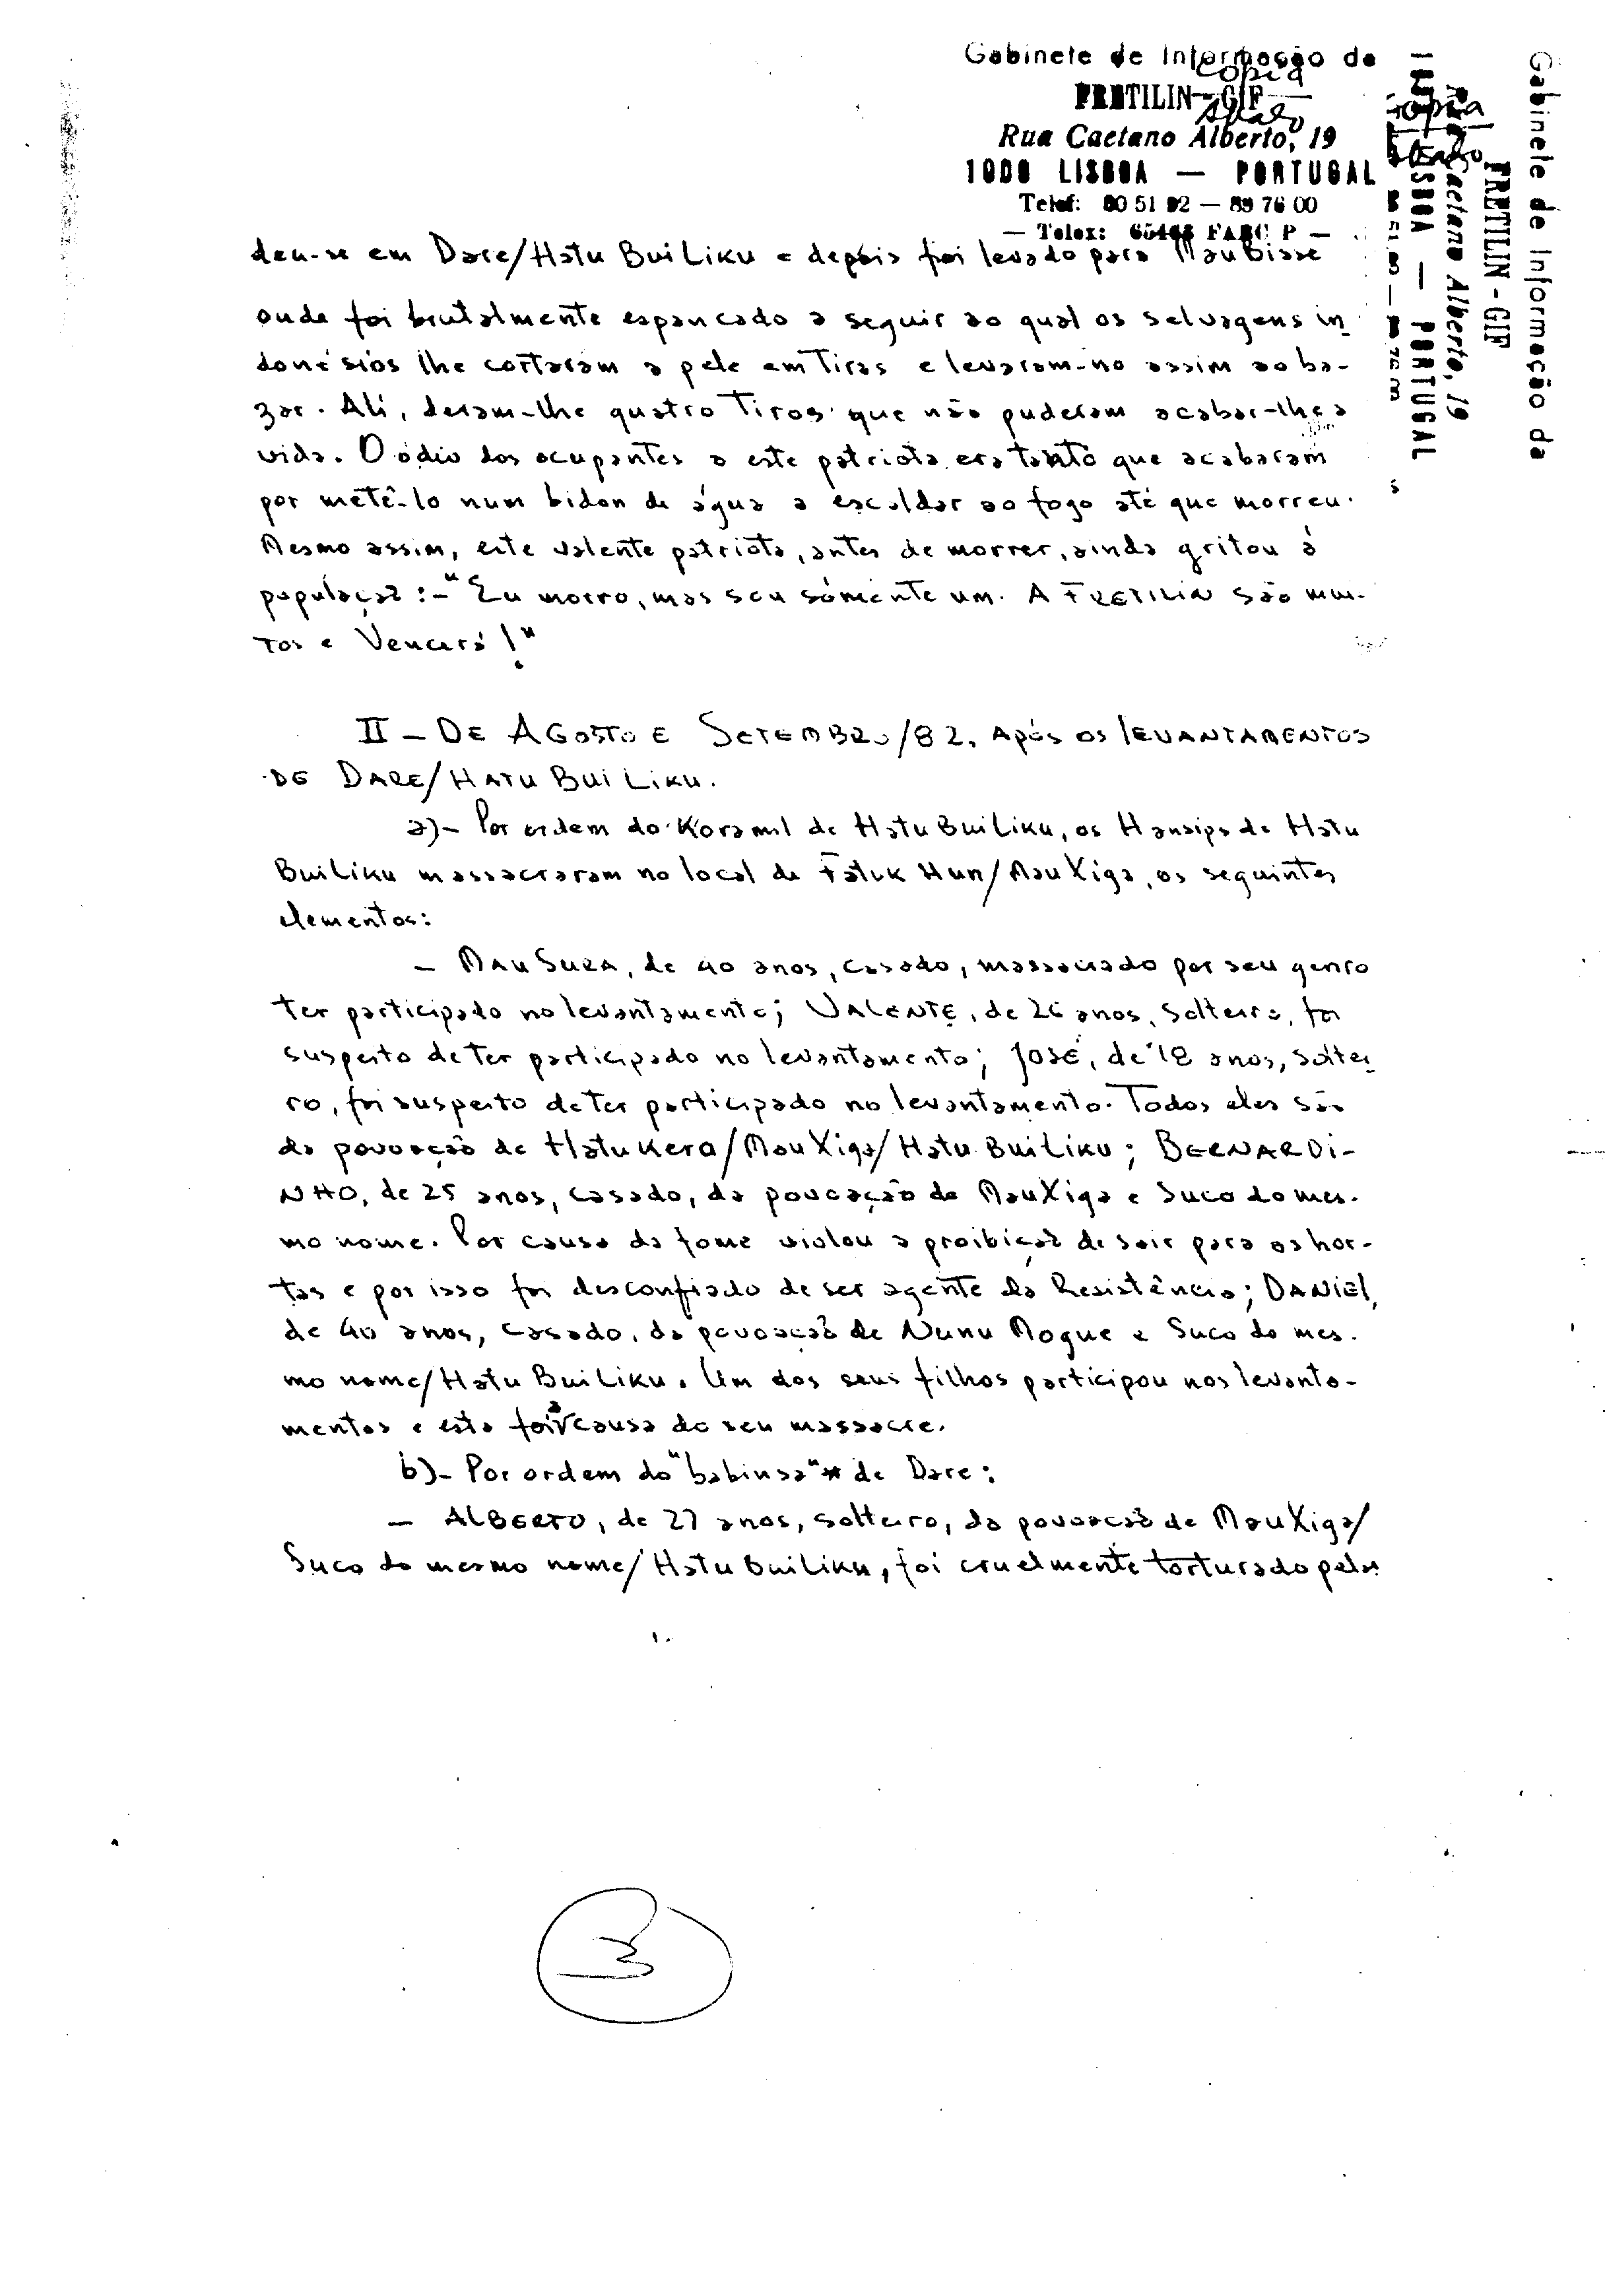 Gabinete de Informação da
Cópia
FRETILIN-GIF
Rua Caetano Alberto, 19
1000 LISBOA — PORTUGAL
Telef: 80 51 92 — 89 76 00
— Telex: FABC P —
Gabinete de Informação da
FRETILIN - GIF
Caetano Alberto, 19
LISBOA — PORTUGAL
cópia
deu-se em Dare/Hatu BuiLiku e depois foi levado para MauBisse
onde foi brutalmente espancado a seguir ao qual os selvagens in
donésios lhe cortaram a pele em tiras e levaram-no assim ao ba-
zar. Ali, deram-lhe quatro tiros que não puderam acabar-lhe a
vida. O ódio dos ocupantes a este patriota era tanto que acabaram
por metê-lo num bidon de água a escaldar ao fogo até que morreu.
Mesmo assim, este valente patriota, antes de morrer, ainda gritou à
população:-"Eu morro, mas sou sòmente um. A FRETILIN são mui-
tos e Vencerá!"
II - DE AGOSTO E SETEMBRO/82, Após os lEVANTAMENTOS
DE DARE/HATU BUILIKU.
a)- Por ordem do Koramil de Hatu BuiLiku, os Hansips de Hatu
BuiLiku massacraram no local de Fatuk Hun/MauXiga, os seguintes
elementos:
- MAU SURA, de 40 anos, casado, massacrado por seu genro
ter participado no levantamento; VALENTE, de 26 anos, solteiro, foi
suspeito de ter participado no levantamento; JOSÉ, de 18 anos, soltei
ro, foi suspeito de ter participado no levantamento. Todos eles são
da povoação de Hatukera/MauXiga/Hatu BuiLiku; BERNARDI-
NHO, de 25 anos, casado, da povoação de MauXiga e Suco do mes-
mo nome. Por causa da fome violou a proibição de sair para as hor-
tas e por isso foi desconfiado de ser agente da Resistência; DANIEL,
de 40 anos, casado, da povoação de Nunu Mogue e Suco do mes-
mo nome/Hatu BuiLiku. Um dos seus filhos participou nos levanta-
mentos e esta foi a causa do seu massacre.
b)- Por ordem do "babinsa"* de Dare:
- AlBERTO, de 27 anos, solteiro, da povoação de MauXiga/
Suco do mesmo nome/Hatu BuiLiku, foi cruelmente torturado pelos
3